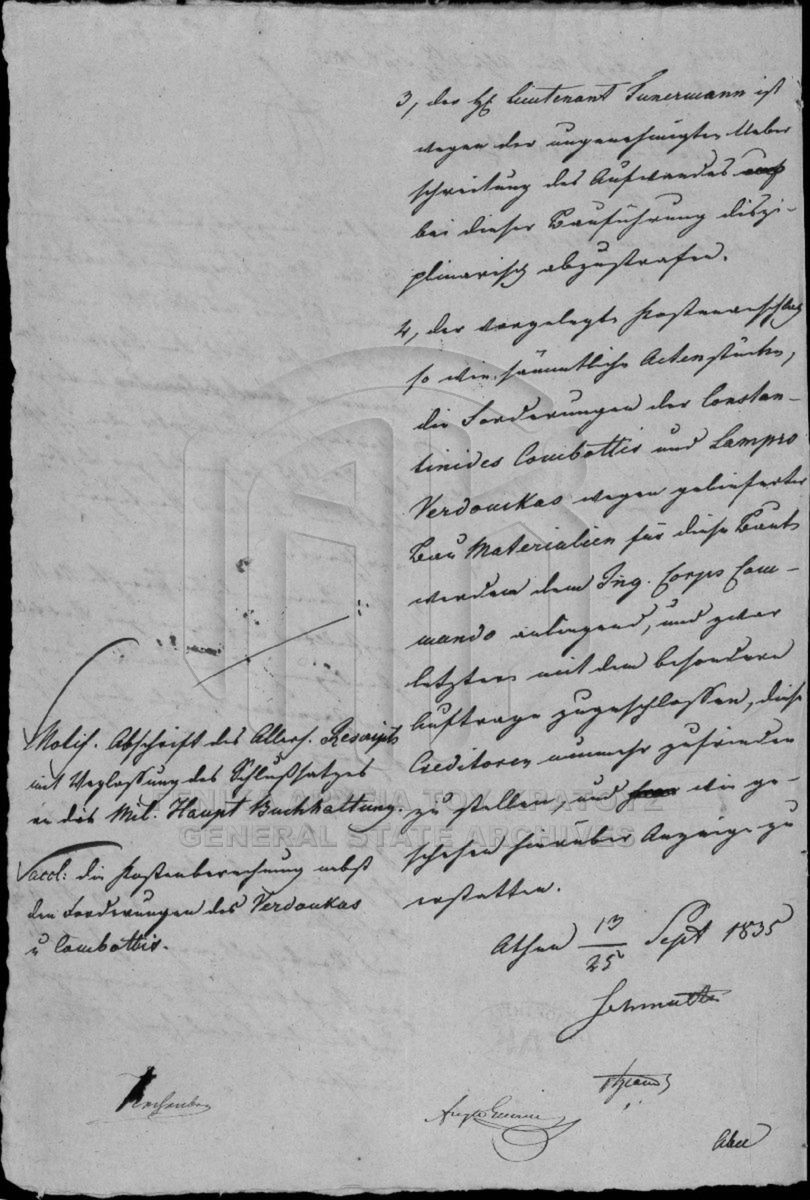 3, der H. Lieutenant Tunermann ist
wegen der ungenehmigten Ueber
schreitung des Aufwandes
bei dieser Bauführung diszi-
plinarisch abzustrafen.
4, der vorgelegte Kostenanschlag
so wie sämmtliche Actenstücke,
die Forderungen der Constan-
tinides Combottis und Lampro
Verdoukas wegen gelieferter
Bau Materialien für diese Bauten
werden dem Ing. Corps Com-
mando anliegend, und zwar
letztere mit dem besondern
Auftrage zugeschlossen, diese
Creditoren nunmehr zufrieden
zu stellen, und wie ge-
schehen hierüber Anzeige zu
erstatten.
Athen 13/25 Sept 1835
Schmaltz
Motif. Abschrift des Allerh. Rescripts
mit Weglassung des Schlußsatzes
an die Mil. Haupt Buchhaltung.
accl: die Kostenberechnung nebst
den Forderungen des Verdoukas
u Combottis.
ΓΕΝΙΚΑ ΑΡΧΕΙΑ ΤΟΥ ΚΡΑΤΟΥΣ
GENERAL STATE ARCHIVES